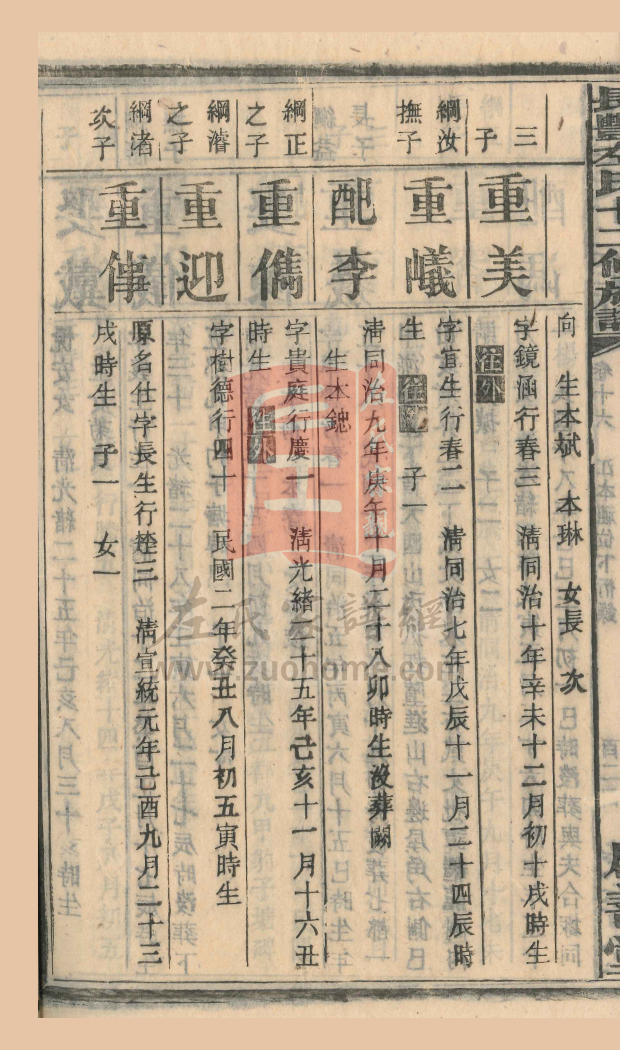 長豐左氏十二修族譜
卷十六
向 生本斌 本琳 女長 次
三子
重美
字鏡涵行春三 清同治十年辛未十二月初十戌時生
往外
綱汝撫子
重㠖
字宜生行春二 清同治七年戊辰十一月二十四辰時
生 往外 子一
配李
清同治九年庚午十月二十八卯時生歿葬闕
生本鍶
綱正之子
重儁
字貴庭行慶一 清光緒二十五年己亥十一月十六丑
時生 往外
綱濬之子
重迎
字樹德行四十 民國二年癸丑八月初五寅時生
綱渚次子
重傳
原名仕字長生行楚三 清宣統元年己酉九月二十三
戌時生 子一 女一
左氏族譜網
www.zuohome.com